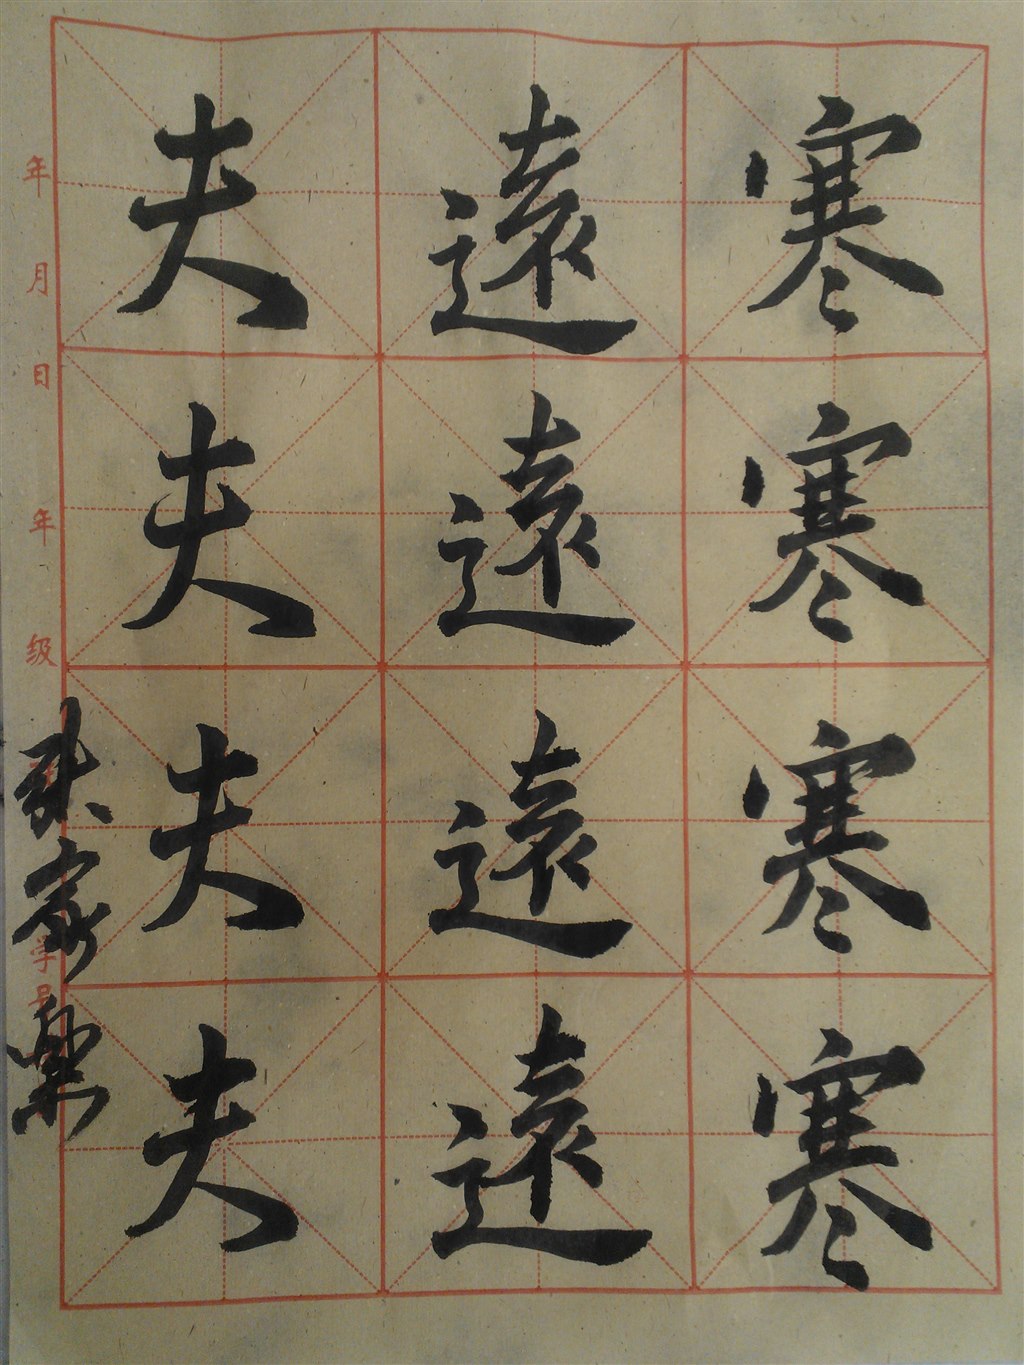 寒寒寒寒
遠遠遠遠
夫夫夫夫
年 月 日 年 级 学号
家